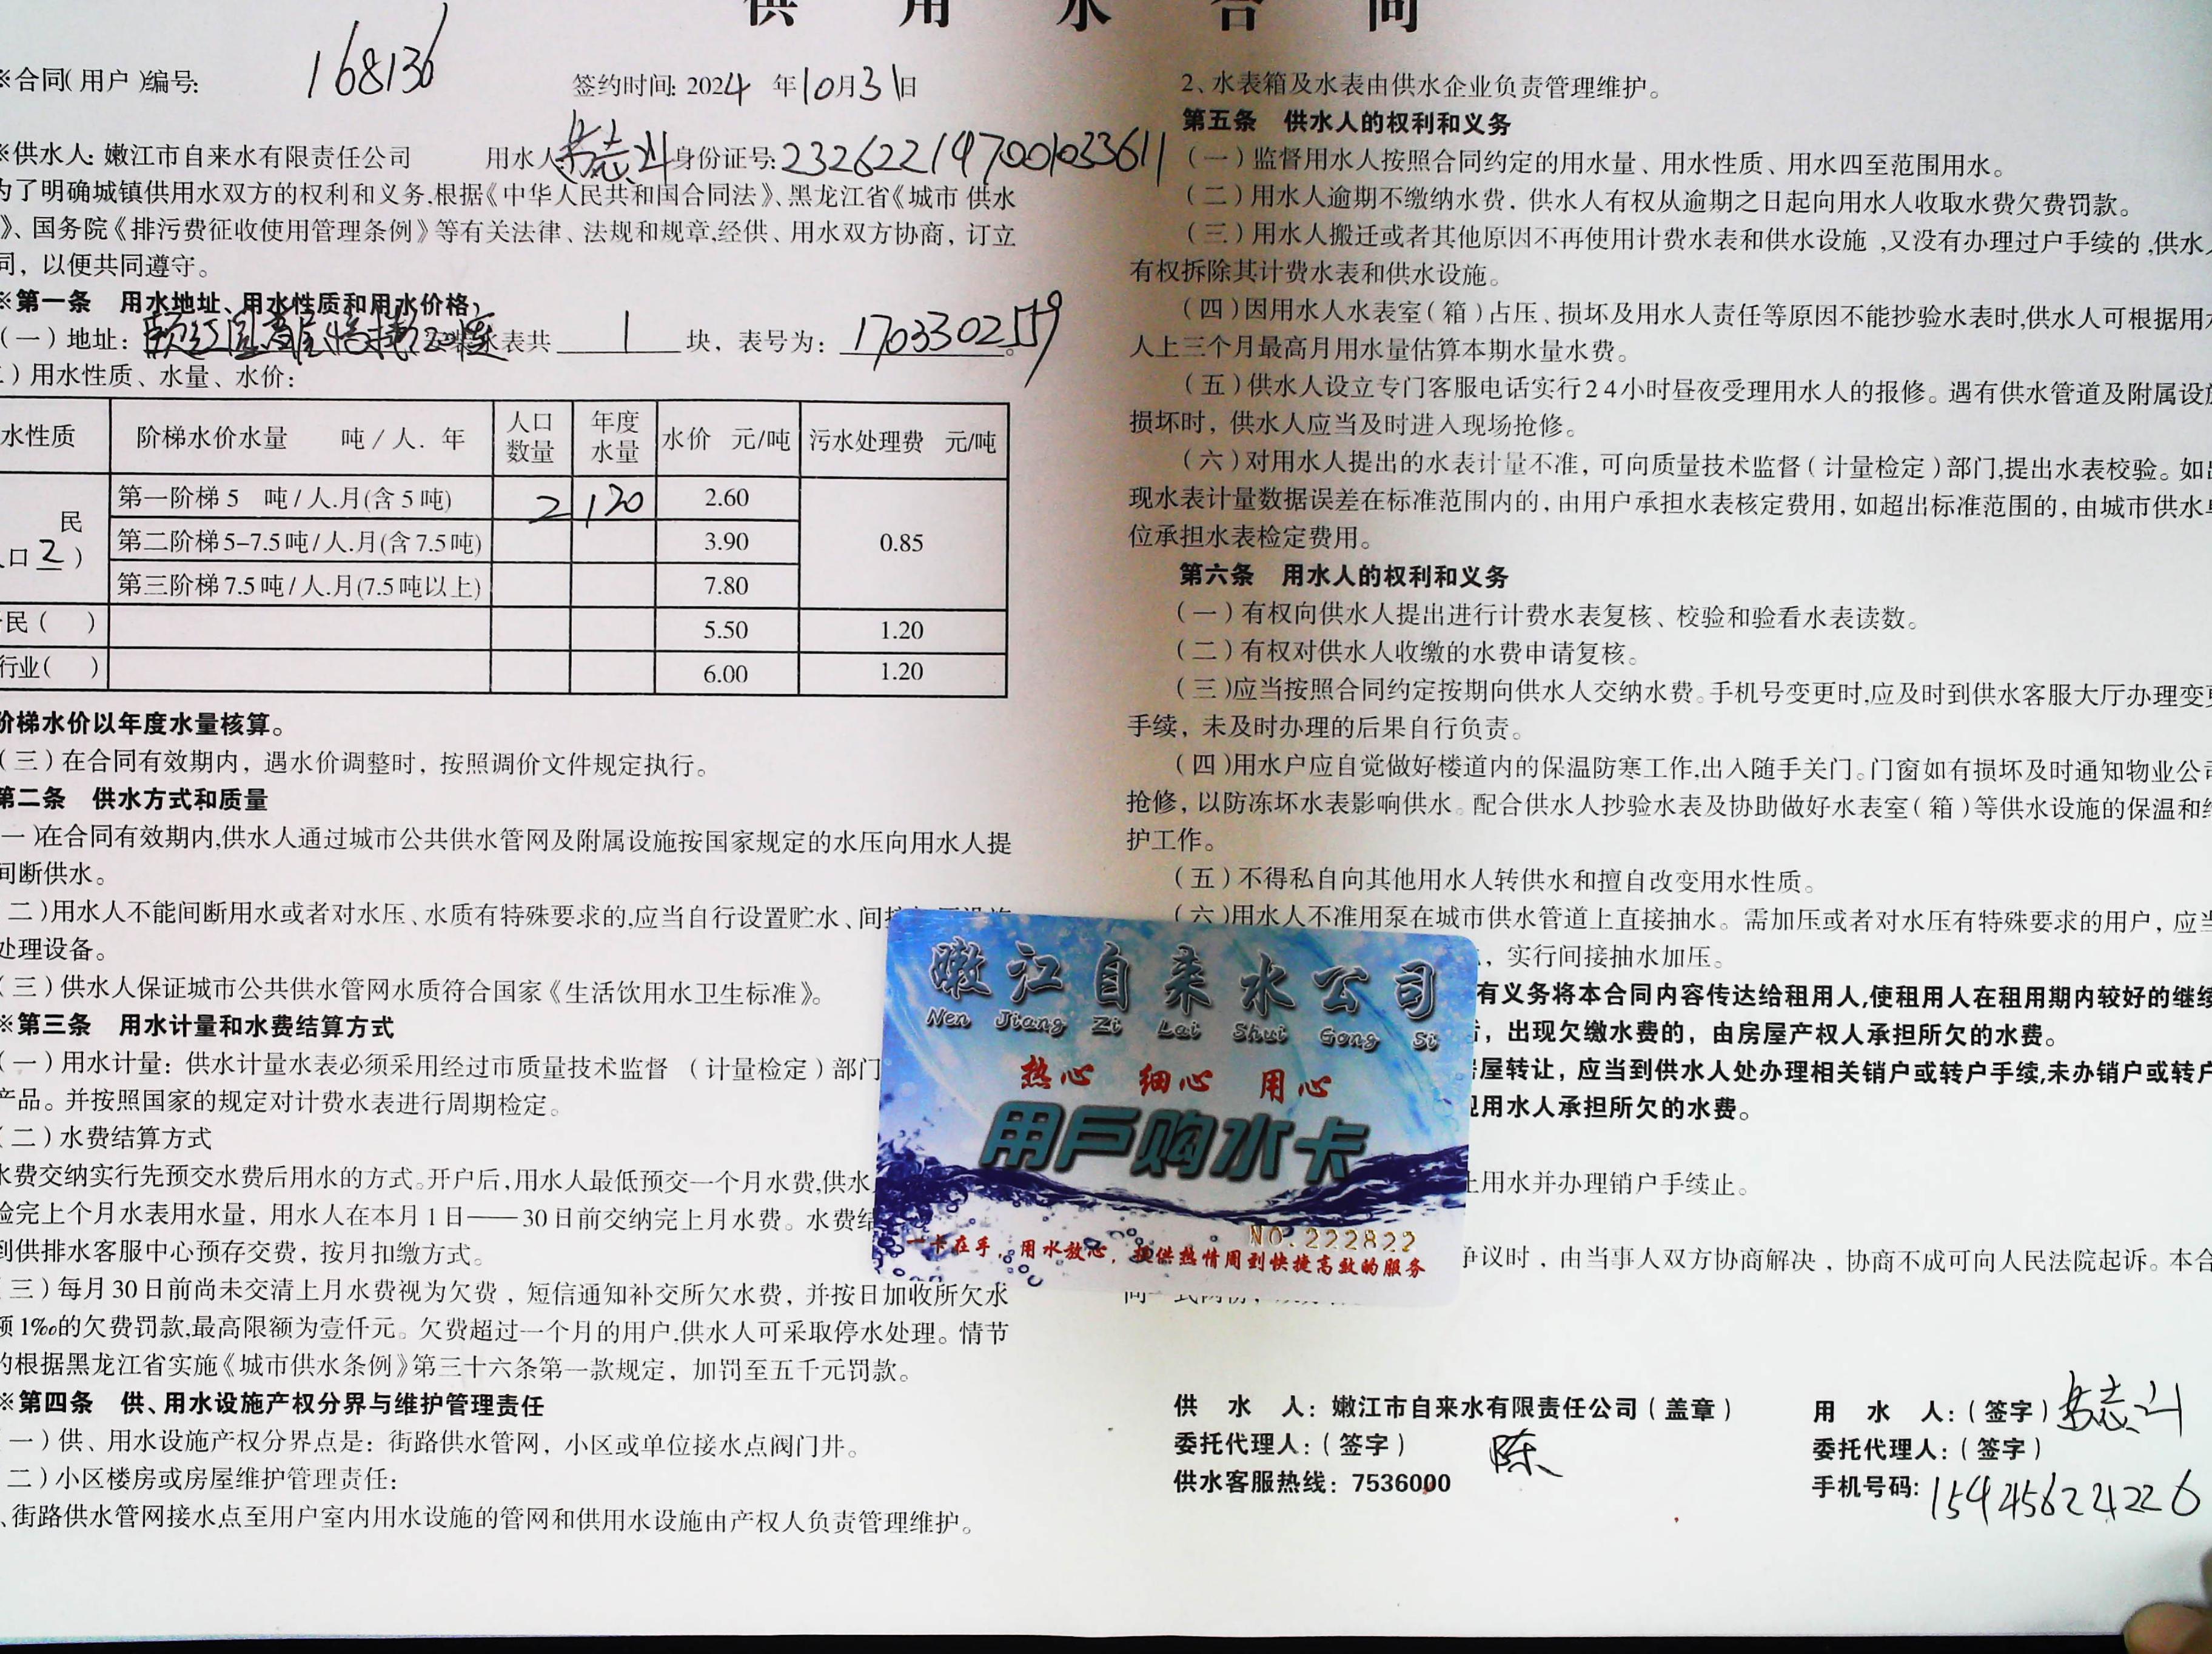 供用水合同
※合同(用户)编号: 168136 签约时间: 2024年10月31日
※供水人: 嫩江市自来水有限责任公司 用水人 身份证号: 232622197001033611
为了明确城镇供用水双方的权利和义务,根据《中华人民共和国合同法》、黑龙江省《城市 供水
》、国务院《排污费征收使用管理条例》等有关法律、法规和规章,经供、用水双方协商，订立
同，以便共同遵守。
※第一条 用水地址、用水性质和用水价格
(一)地址: 水表共 1 块，表号为: 1703302559。
)用水性质、水量、水价:
水性质 阶梯水价水量 吨/人.年 人口数量 年度水量 水价 元/吨 污水处理费 元/吨
民
口2) 第一阶梯5 吨/人.月(含5吨) 2 120 2.60 0.85
第二阶梯5-7.5吨/人.月(含7.5吨) 3.90
第三阶梯7.5吨/人.月(7.5吨以上) 7.80
民( ) 5.50 1.20
行业( ) 6.00 1.20
阶梯水价以年度水量核算。
(三)在合同有效期内，遇水价调整时，按照调价文件规定执行。
第二条 供水方式和质量
一)在合同有效期内,供水人通过城市公共供水管网及附属设施按国家规定的水压向用水人提
间断供水。
二)用水人不能间断用水或者对水压、水质有特殊要求的,应当自行设置贮水、间接
处理设备。
(三)供水人保证城市公共供水管网水质符合国家《生活饮用水卫生标准》。
※第三条 用水计量和水费结算方式
(一)用水计量: 供水计量水表必须采用经过市质量技术监督 (计量检定)部门
产品。并按照国家的规定对计费水表进行周期检定。
(二)水费结算方式
水费交纳实行先预交水费后用水的方式。开户后,用水人最低预交一个月水费,供水
验完上个月水表用水量，用水人在本月1日——30日前交纳完上月水费。水费结
到供排水客服中心预存交费，按月扣缴方式。
三)每月30日前尚未交清上月水费视为欠费，短信通知补交所欠水费，并按日加收所欠水
额1‰的欠费罚款,最高限额为壹仟元。欠费超过一个月的用户,供水人可采取停水处理。情节
的根据黑龙江省实施《城市供水条例》第三十六条第一款规定，加罚至五千元罚款。
※第四条 供、用水设施产权分界与维护管理责任
一)供、用水设施产权分界点是: 街路供水管网，小区或单位接水点阀门井。
二)小区楼房或房屋维护管理责任:
、街路供水管网接水点至用户室内用水设施的管网和供用水设施由产权人负责管理维护。
2、水表箱及水表由供水企业负责管理维护。
第五条 供水人的权利和义务
(一)监督用水人按照合同约定的用水量、用水性质、用水四至范围用水。
(二)用水人逾期不缴纳水费，供水人有权从逾期之日起向用水人收取水费欠费罚款。
(三)用水人搬迁或者其他原因不再使用计费水表和供水设施,又没有办理过户手续的,供水人
有权拆除其计费水表和供水设施。
(四)因用水人水表室(箱)占压、损坏及用水人责任等原因不能抄验水表时,供水人可根据用水
人上三个月最高月用水量估算本期水量水费。
(五)供水人设立专门客服电话实行24小时昼夜受理用水人的报修。遇有供水管道及附属设施
损坏时，供水人应当及时进入现场抢修。
(六)对用水人提出的水表计量不准，可向质量技术监督(计量检定)部门,提出水表校验。如出
现水表计量数据误差在标准范围内的，由用户承担水表核定费用，如超出标准范围的，由城市供水单
位承担水表检定费用。
第六条 用水人的权利和义务
(一)有权向供水人提出进行计费水表复核、校验和验看水表读数。
(二)有权对供水人收缴的水费申请复核。
(三)应当按照合同约定按期向供水人交纳水费。手机号变更时,应及时到供水客服大厅办理变更
手续，未及时办理的后果自行负责。
(四)用水户应自觉做好楼道内的保温防寒工作,出入随手关门。门窗如有损坏及时通知物业公司
抢修，以防冻坏水表影响供水。配合供水人抄验水表及协助做好水表室(箱)等供水设施的保温和维
护工作。
(五)不得私自向其他用水人转供水和擅自改变用水性质。
(六)用水人不准用泵在城市供水管道上直接抽水。需加压或者对水压有特殊要求的用户，应当
，实行间接抽水加压。
有义务将本合同内容传达给租用人,使租用人在租用期内较好的继续
，出现欠缴水费的，由房屋产权人承担所欠的水费。
房屋转让，应当到供水人处办理相关销户或转户手续,未办销户或转户
现用水人承担所欠的水费。
止用水并办理销户手续止。
争议时，由当事人双方协商解决，协商不成可向人民法院起诉。本合
嫩江自来水公司
Nen Jiang Zi Lai Shui Gong Si
热心 细心 用心
用户购水卡
NO.222822
一卡在手，用水放心，提供热情周到快捷高效的服务
供水人: 嫩江市自来水有限责任公司(盖章) 用水人:(签字)
委托代理人:(签字) 陈 委托代理人:(签字)
供水客服热线: 7536000 手机号码: 15945624226